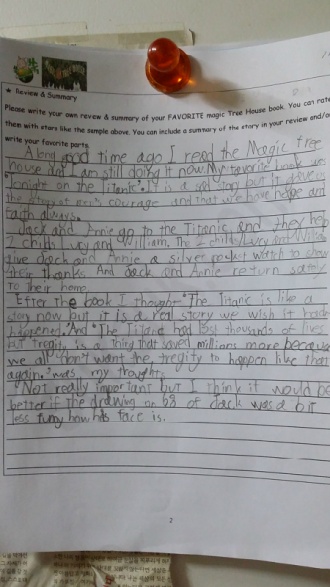 ★ Review & Summary
Please write your own review & summary of your FAVORITE magic Tree House book. You can rate
them with stars like the sample above. You can include a summary of the story in your review and/or
write your favorite parts.
A long good time ago I read the Magic tree
house and I am still doing it now. My favorite book was
"Tonight on the Titanic". It is a sad story but it gave us
the men's courage and that we have hope and
faith always.
Jack and Annie go to the Titanic and they help
2 childs Lucy and William. The 2 childs Lucy and William
give Jack and Annie a silver pocket watch to show
their thanks. And Jack and Annie return safely
to their home.
Efter the book I thought "The Titanic is like a
story now but it is a real story we wish it hadn
happened." And "The Titanic had lost thousands of lives
but tregity is a thing that saved millions more because
we all don't want the tregity to happen like that
again." was my thoughts.
Not really important but I think it would be
better if the drawing on 68 of Jack was a bit
less funny how his face is.
2